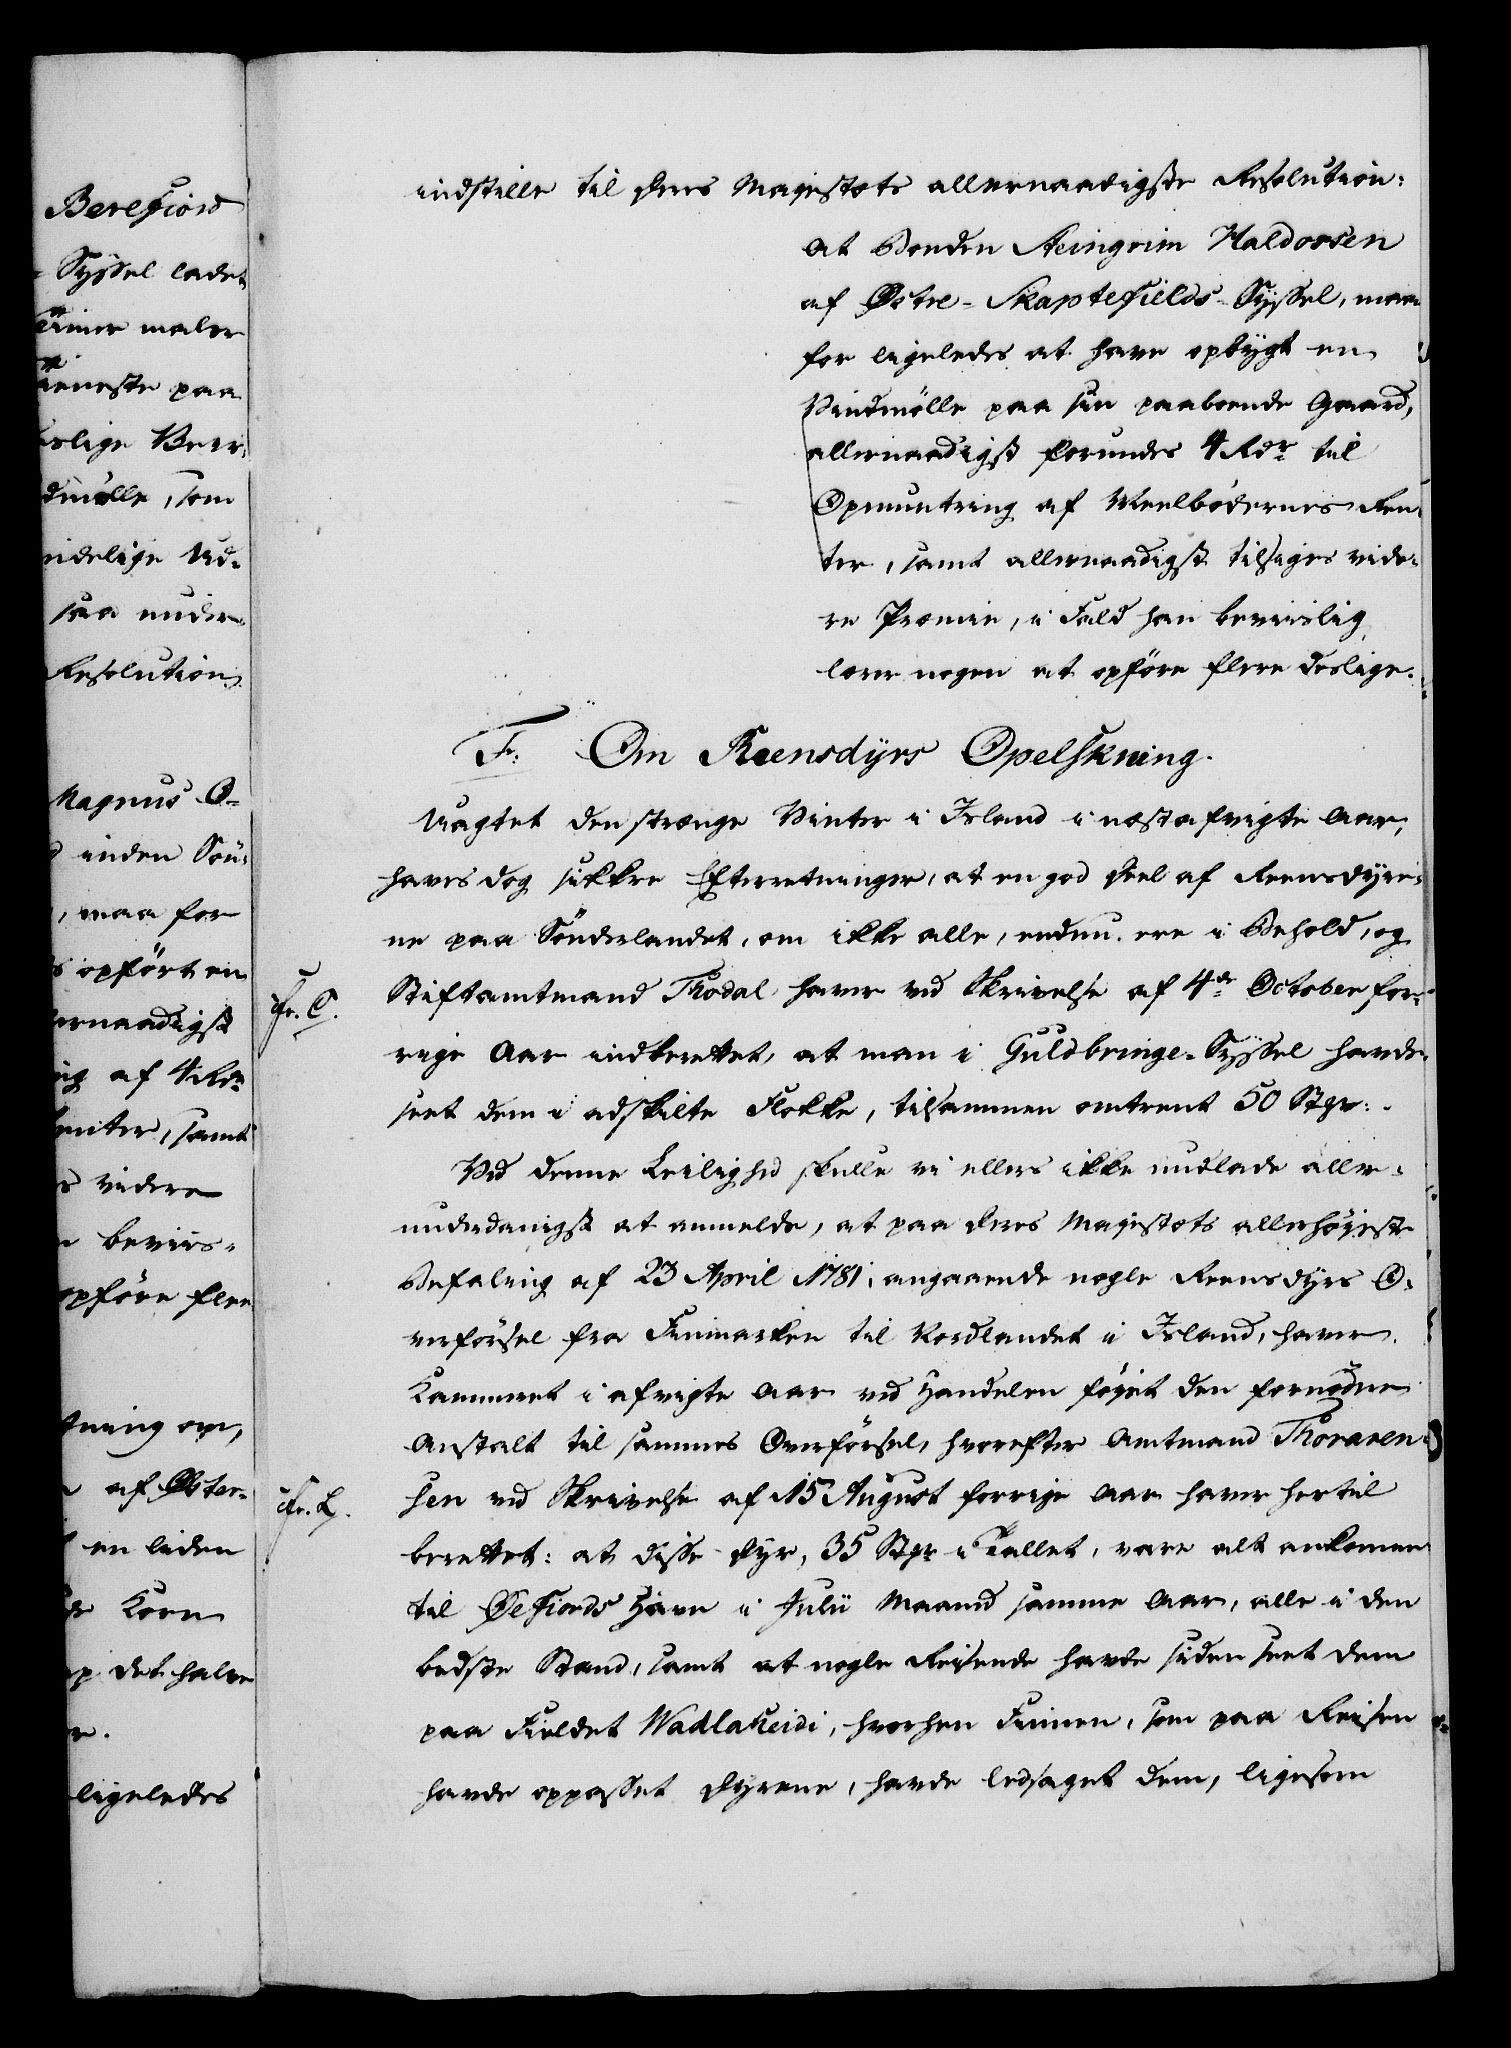 Berefiord
Syssel ladet
maler
tieneste paa
Beer-
dmølle, som
Ud-
saa under-
Resolution

Magnus O-
inden Sön-
, maa for
opført en
ernaadigst
af 4 Rdr
enter, samt
videre
beviis-
opføre flere

tning om,
af Øster-
en liden
Korn
op det halve
r.
ligeledes

indstille til Deres Majestæts allernaadigste Resolution:
at Bonden Steingrim Haldorsen
af Østre-Skaptefields-Syssel, maa
for ligeledes at have opbygt en
Vindmølle paa sin paaboende Gaard,
allernaadigst forundes 4 Rdr til
Opmuntring af Meelbødernes Ren-
ter, samt allernaadigst tilsiges vide-
re Præmie, i Fald han beviislig
lærer nogen at opføre flere deslige.
F. Om Reensdyrs Opelskning.
Uagtet den strænge Vinter i Island i næstafvigte Aar,
haves dog sikkre Efterretninger, at en god Deel af Reensdyre-
ne paa Sönderlandet, om ikke alle, endnu ere i Behold, og
Cfr. C.
Stiftamtmand Thodal haver ved Skrivelse af 4de October for-
rige Aar indberettet, at man i Guldbringe-Syssel havde
seet dem i adskilte Flokke, tilsammen omtrent 50 Stkr:.
Ved denne Leilighed skulle vi ellers ikke undlade aller-
underdanigst at anmelde, at paa Deres Majestæts allerhøjeste
Befaling af 23 April 1781, angaaende nogle Reensdyrs O-
verførsel fra Finmarken til Nordlandet i Island, haver
Kammeret i afvigte Aar ved Handelen føjet den fornødne
Anstalt til sammes Overførsel, hvorefter Amtmand Thoraren-
Cfr. L.
sen ved Skrivelse af 15 August forrige Aar haver hertil
berettet: at disse Dyr, 35 Stkr i Tallet, vare alt ankomne
til Øefiords Havn i Julii Maaned samme Aar, alle i den
bedste Stand, samt at nogle Reisende havde siden seet dem
paa Fieldet Wadlaheidi, hvorhen Finnen, som paa Reisen
havde oppasset Dyrene, havde ledsaget dem, ligesom